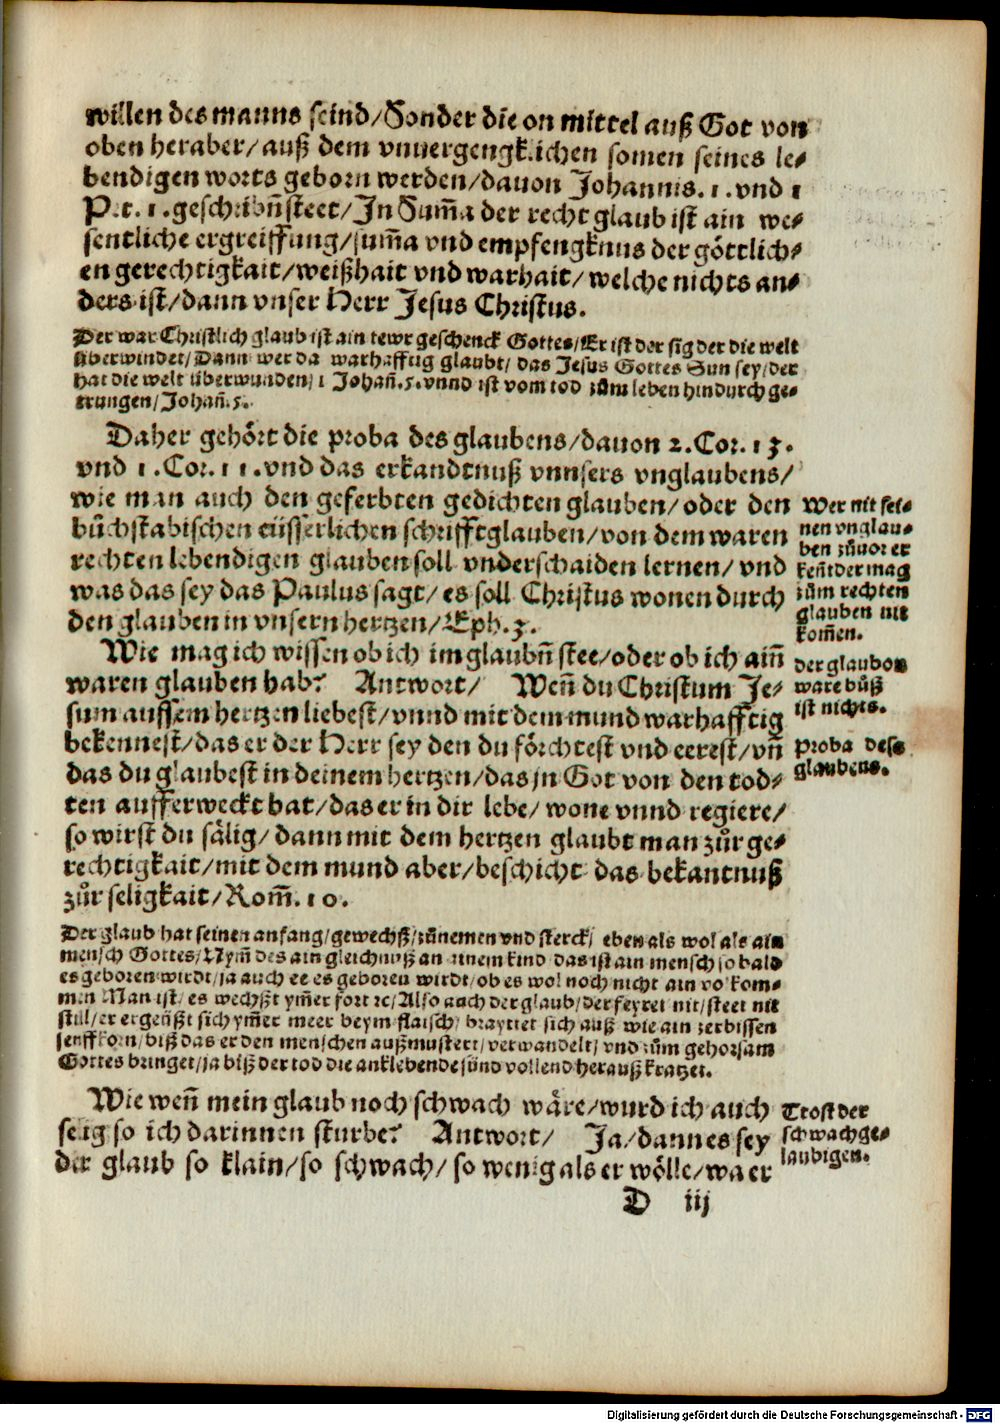 willen des manns seind/Sonder die on mittel auß Got von
oben heraber/auß dem vnuergengklichen somen seines le-
bendigen worts geborn werden/dauon Johannis. 1. vnd 1
Pet. 1. geschribn̄ steet/In Sum̄a der recht glaub ist ain we-
sentliche ergreiffung/sum̄a vnd empfengknus der göttlich-
en gerechtigkait/weißhait vnd warhait/welche nichts an-
ders ist/dann vnser Herr Jesus Christus.
Der war Christlich glaub ist ain tewr geschenck Gottes/Er ist der sig der die welt
überwindet/Dann wer da warhafftig glaubt/das Jesus Gottes Sun sey/der
hat die welt überwunden/1 Johan̄. 5. vnnd ist vom tod zům leben hindurch ge-
trungen/Johan̄. 5.
Daher gehört die proba des glaubens/dauon 2. Cor. 13.
vnd 1. Cor. 11. vnd das erkandtnuß vnnsers vnglaubens/
wie man auch den geferbten gedichten glauben/oder den
bůchstabischen eüsserlichen schrifftglauben/von dem waren
rechten lebendigen glauben soll vnderschaiden lernen/vnd
was das sey das Paulus sagt/es soll Christus wonen durch
den glauben in vnsern hertzen/Eph. 3.
Wer nit sei-
nen vnglau-
ben zůuor er
ken̄t der mag
zům rechten
glauben nit
kom̄en.
Wie mag ich wissen ob ich im glaubn̄ stee/oder ob ich ain̄
waren glauben hab? Antwort/ Wen̄ du Christum Je-
sum aussem hertzen liebest/vnnd mit dem mund warhafftig
bekennest/das er der Herr sey den du förchtest vnd eerest/vn̄
das du glaubest in deinem hertzen/das jn Got von den tod-
ten aufferweckt hat/das er in dir lebe/wone vnnd regiere/
so wirst du sälig/dann mit dem hertzen glaubt man zůr ge-
rechtigkait/mit dem mund aber/beschicht das bekantnuß
zůr seligkait/Rom̄. 10.
der glaub on
ware bůß
ist nichts.
proba des
glaubens.
Der glaub hat seinen anfang/gewechß/zůnemen vnd sterck/ eben als wol als ain
mensch Gottes/Nym̄ des ain gleichnuß an einem kind das ist ain mensch so bald
es geboren wirdt/ja auch ee es geboren wirdt/ob es wol noch nicht ain volkom-
men Man ist/es wechßt ym̄er fort ꝛc/Also auch der glaub/der feyret nit/steet nit
still/er ergeüßt sich ym̄er meer beym flaisch/braytet sich auß wie ain zerbissen
senffkorn/biß das er den menschen außmustert/verwandelt/vnd zům gehorsam
Gottes bringet/ja biß der tod die anklebende sünd vollend herauß kratzet.
Wie wen̄ mein glaub noch schwach wäre/wurd ich auch
selig so ich darinnen sturbe? Antwort/ Ja/dann es sey
der glaub so klain/so schwach/so wenig als er wölle/wa er
Trost der
schwachge-
laubigen.
D iij
Digitalisierung gefördert durch die Deutsche Forschungsgemeinschaft - DFG